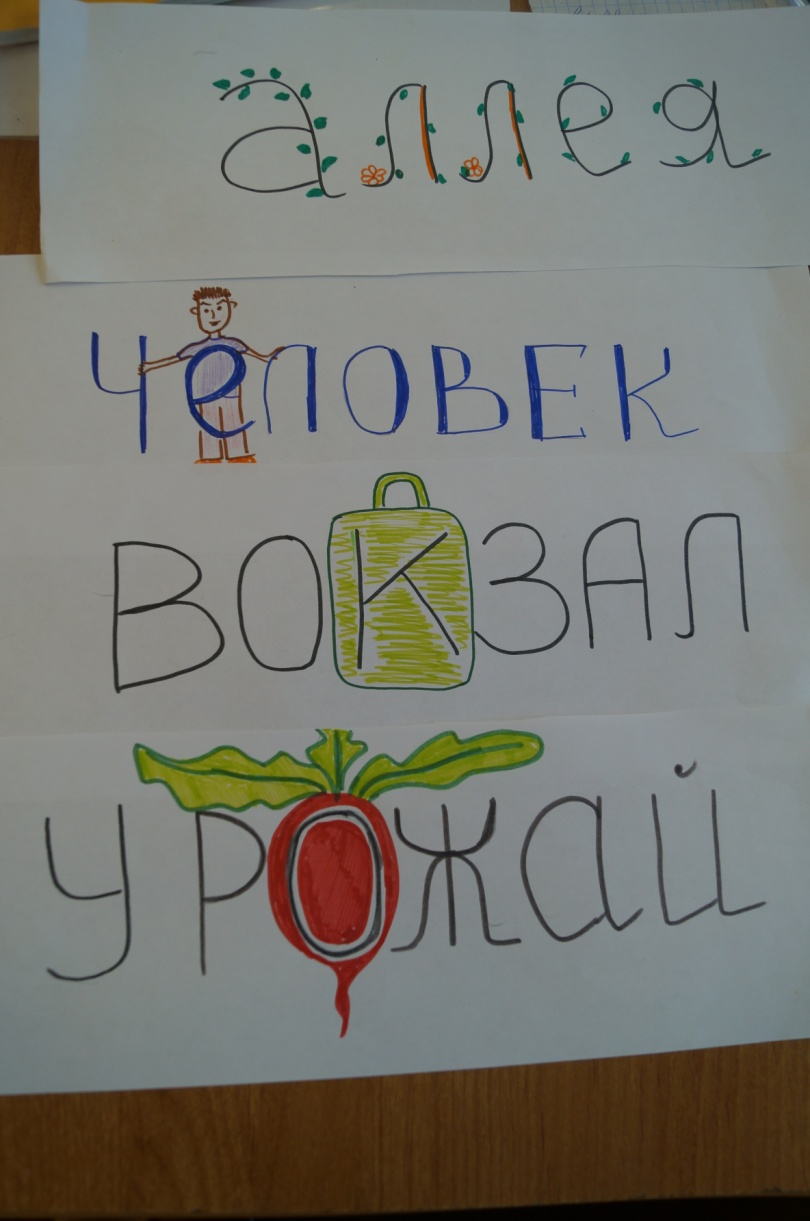 аллея
ЧеЛОВЕК
ВОКЗАЛ
УРОЖай